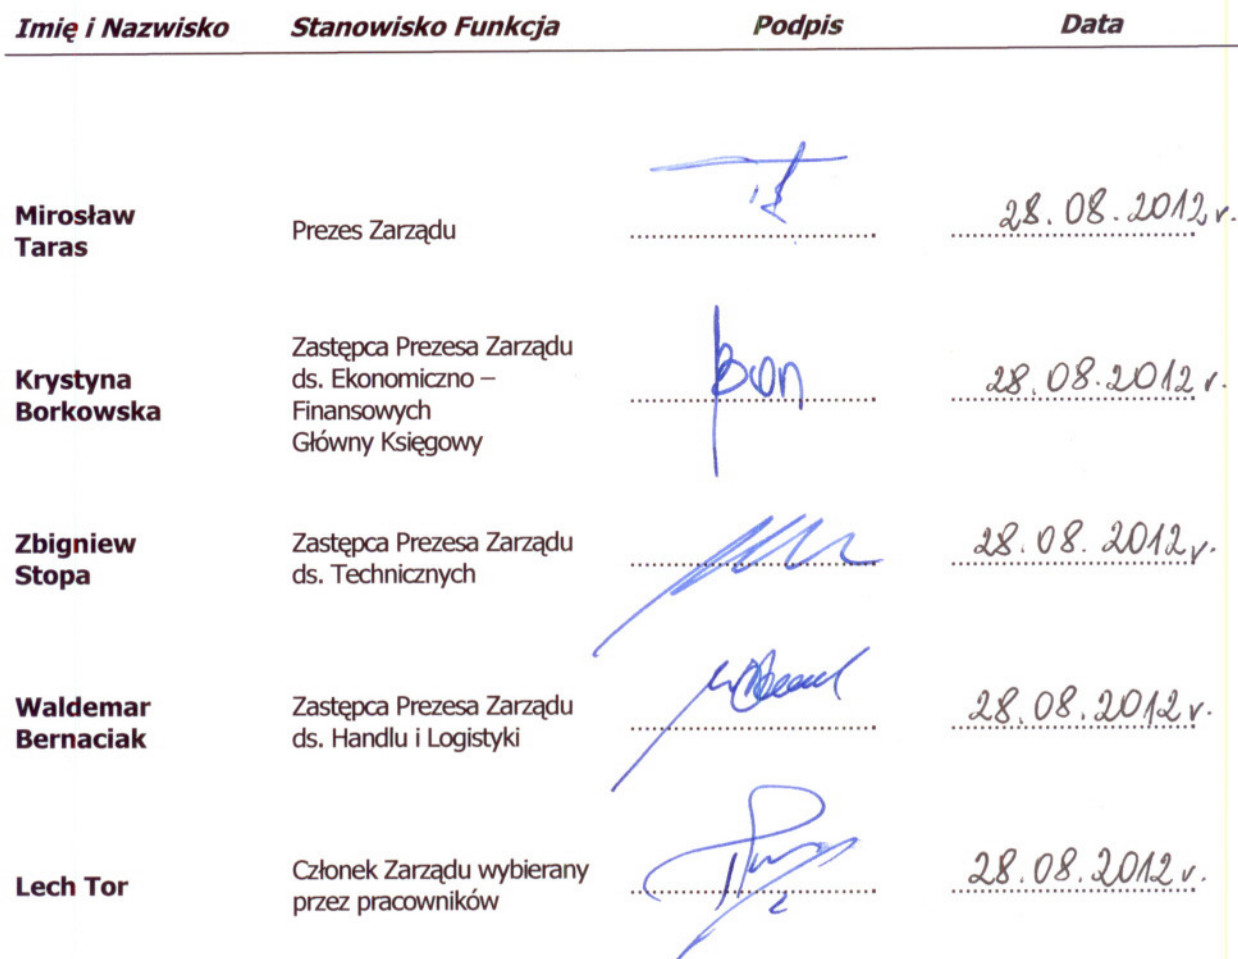 Imię i Nazwisko Stanowisko Funkcja Podpis Data
Mirosław
Taras
Prezes Zarządu
28.08.2012 r.
Krystyna
Borkowska
Zastępca Prezesa Zarządu
ds. Ekonomiczno –
Finansowych
Główny Księgowy
28.08.2012 r.
Zbigniew
Stopa
Zastępca Prezesa Zarządu
ds. Technicznych
28.08.2012 r.
Waldemar
Bernaciak
Zastępca Prezesa Zarządu
ds. Handlu i Logistyki
28.08.2012 r.
Lech Tor
Członek Zarządu wybierany
przez pracowników
28.08.2012 r.